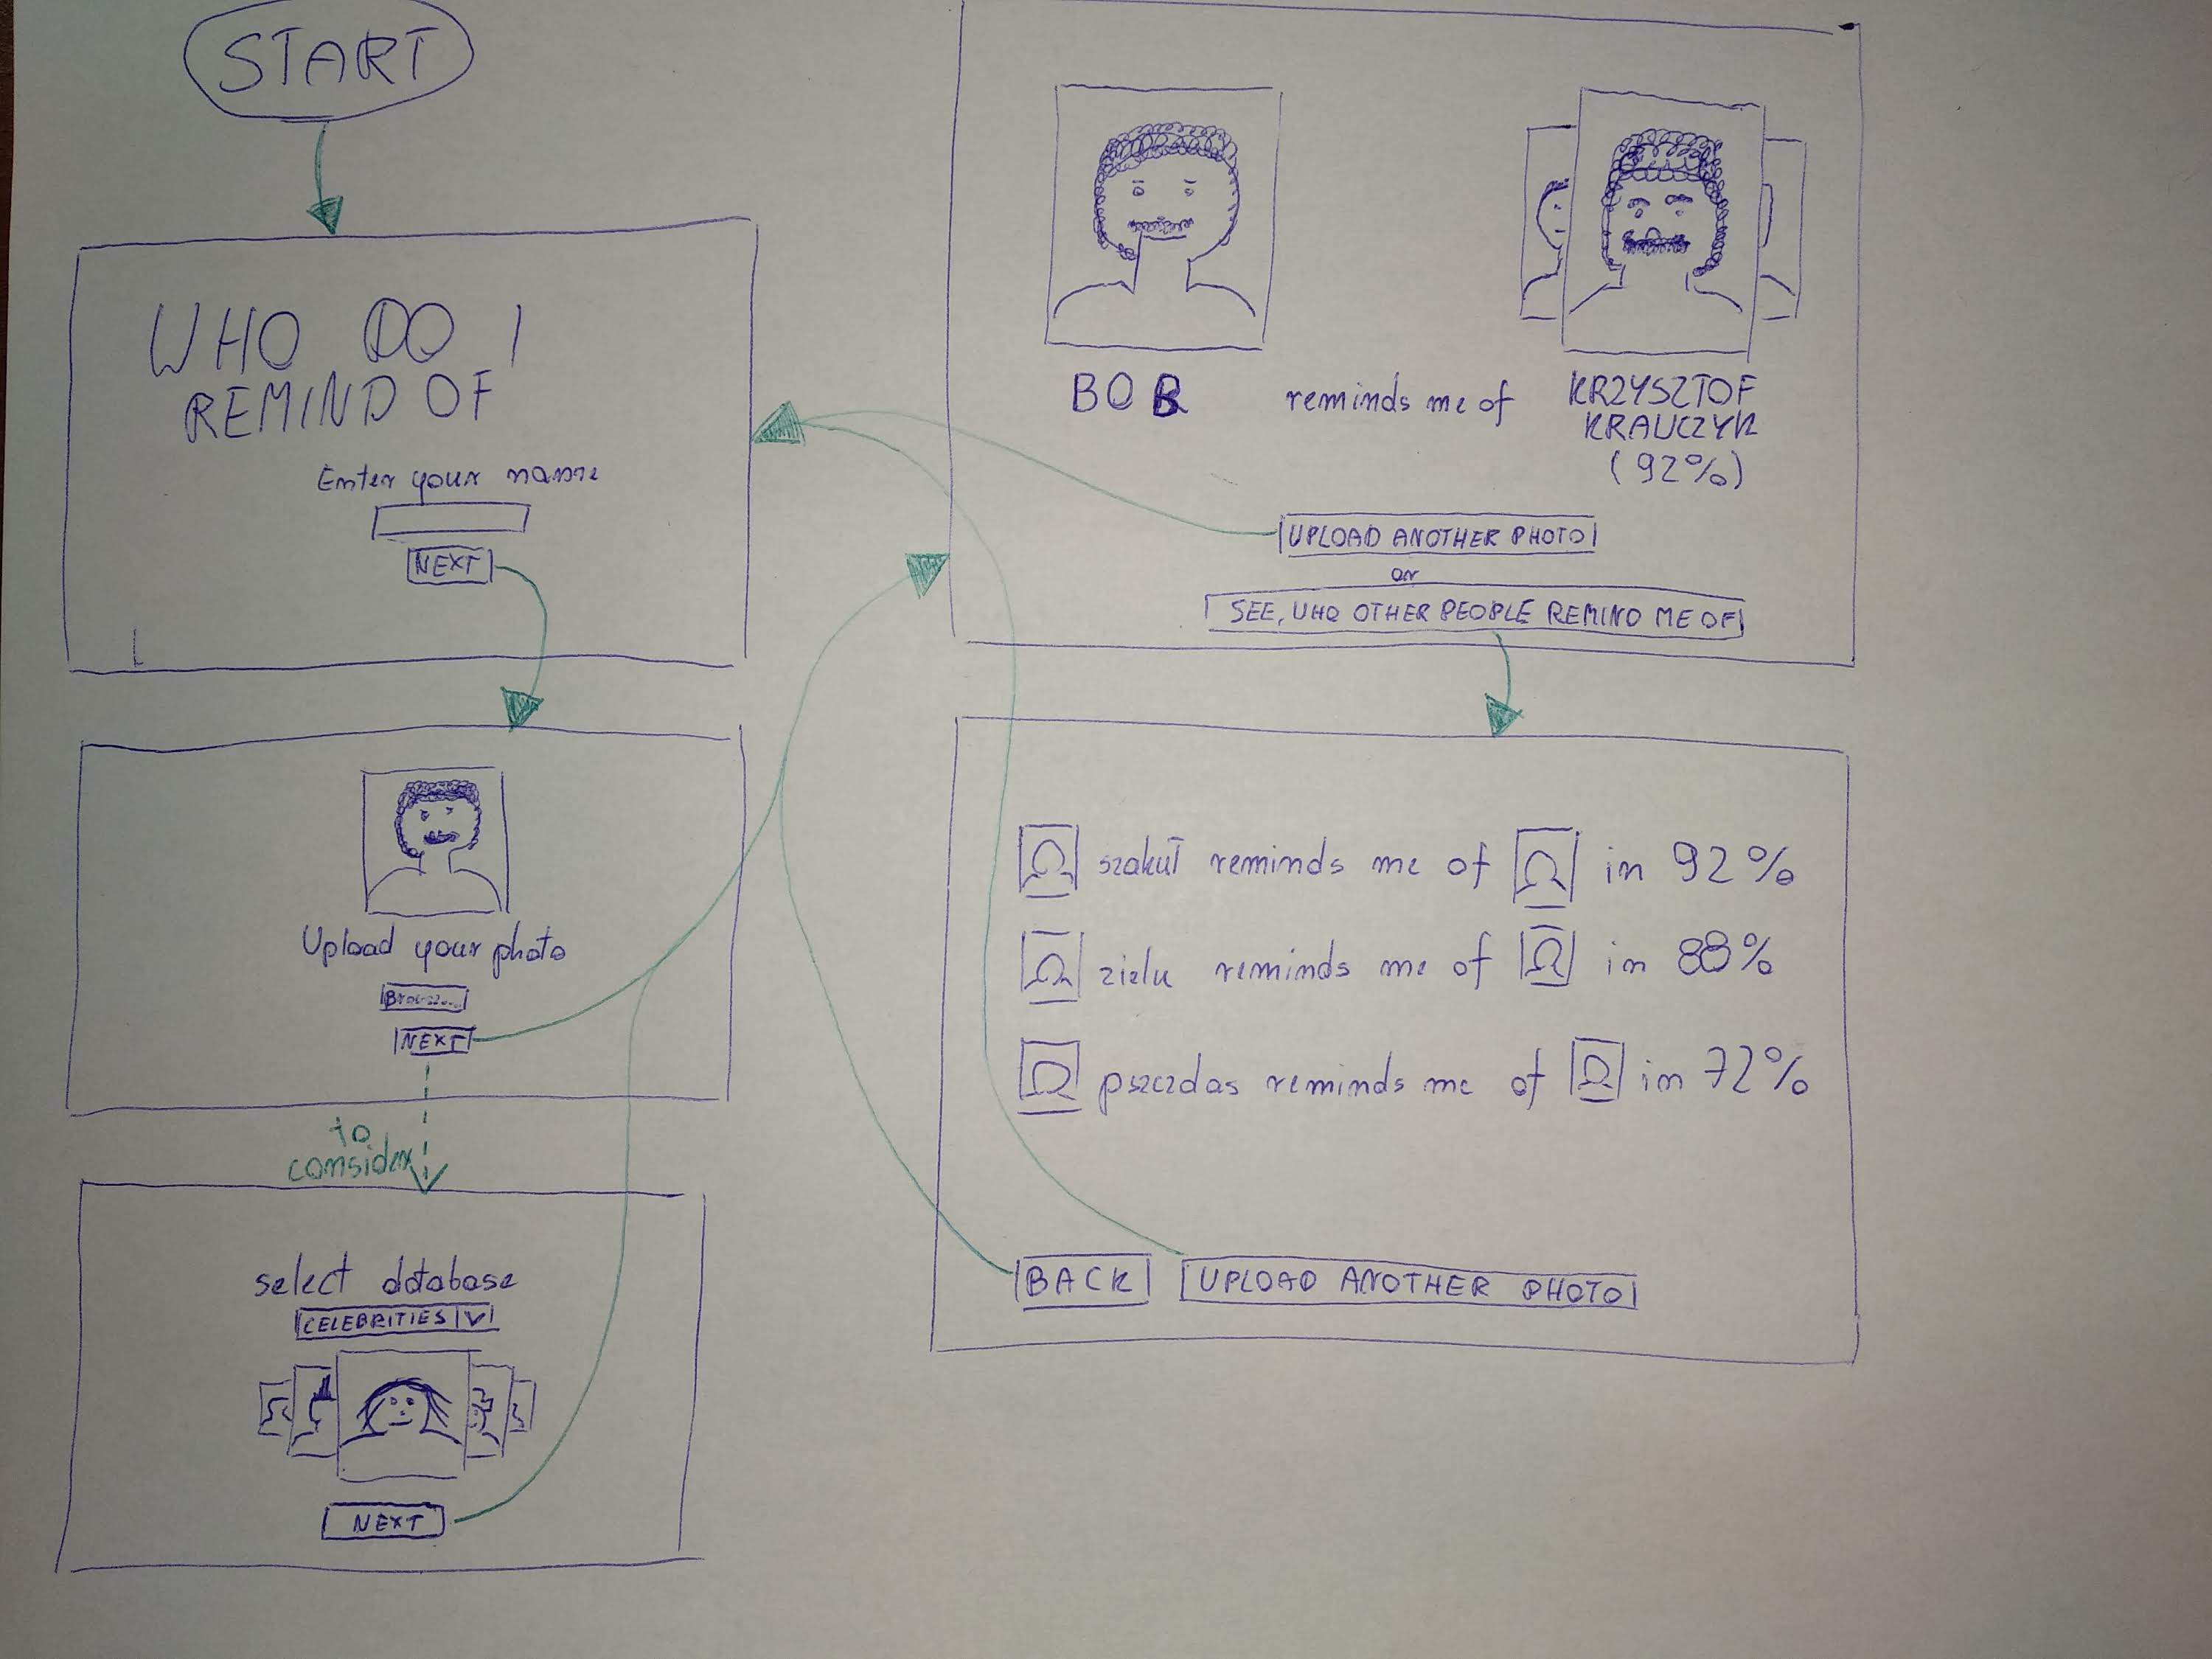 START
WHO DO I
REMIND OF
Enter your name
NEXT
Upload your photo
NEXT
to
consider
select database
CELEBRITIES
NEXT
BOB reminds me of KRZYSZTOF
KRAWCZYK
(92%)
UPLOAD ANOTHER PHOTO
or
SEE, WHO OTHER PEOPLE REMIND ME OF
szakuł reminds me of in 92%
zielu reminds me of in 88%
pszczdas reminds me of in 72%
BACK UPLOAD ANOTHER PHOTO